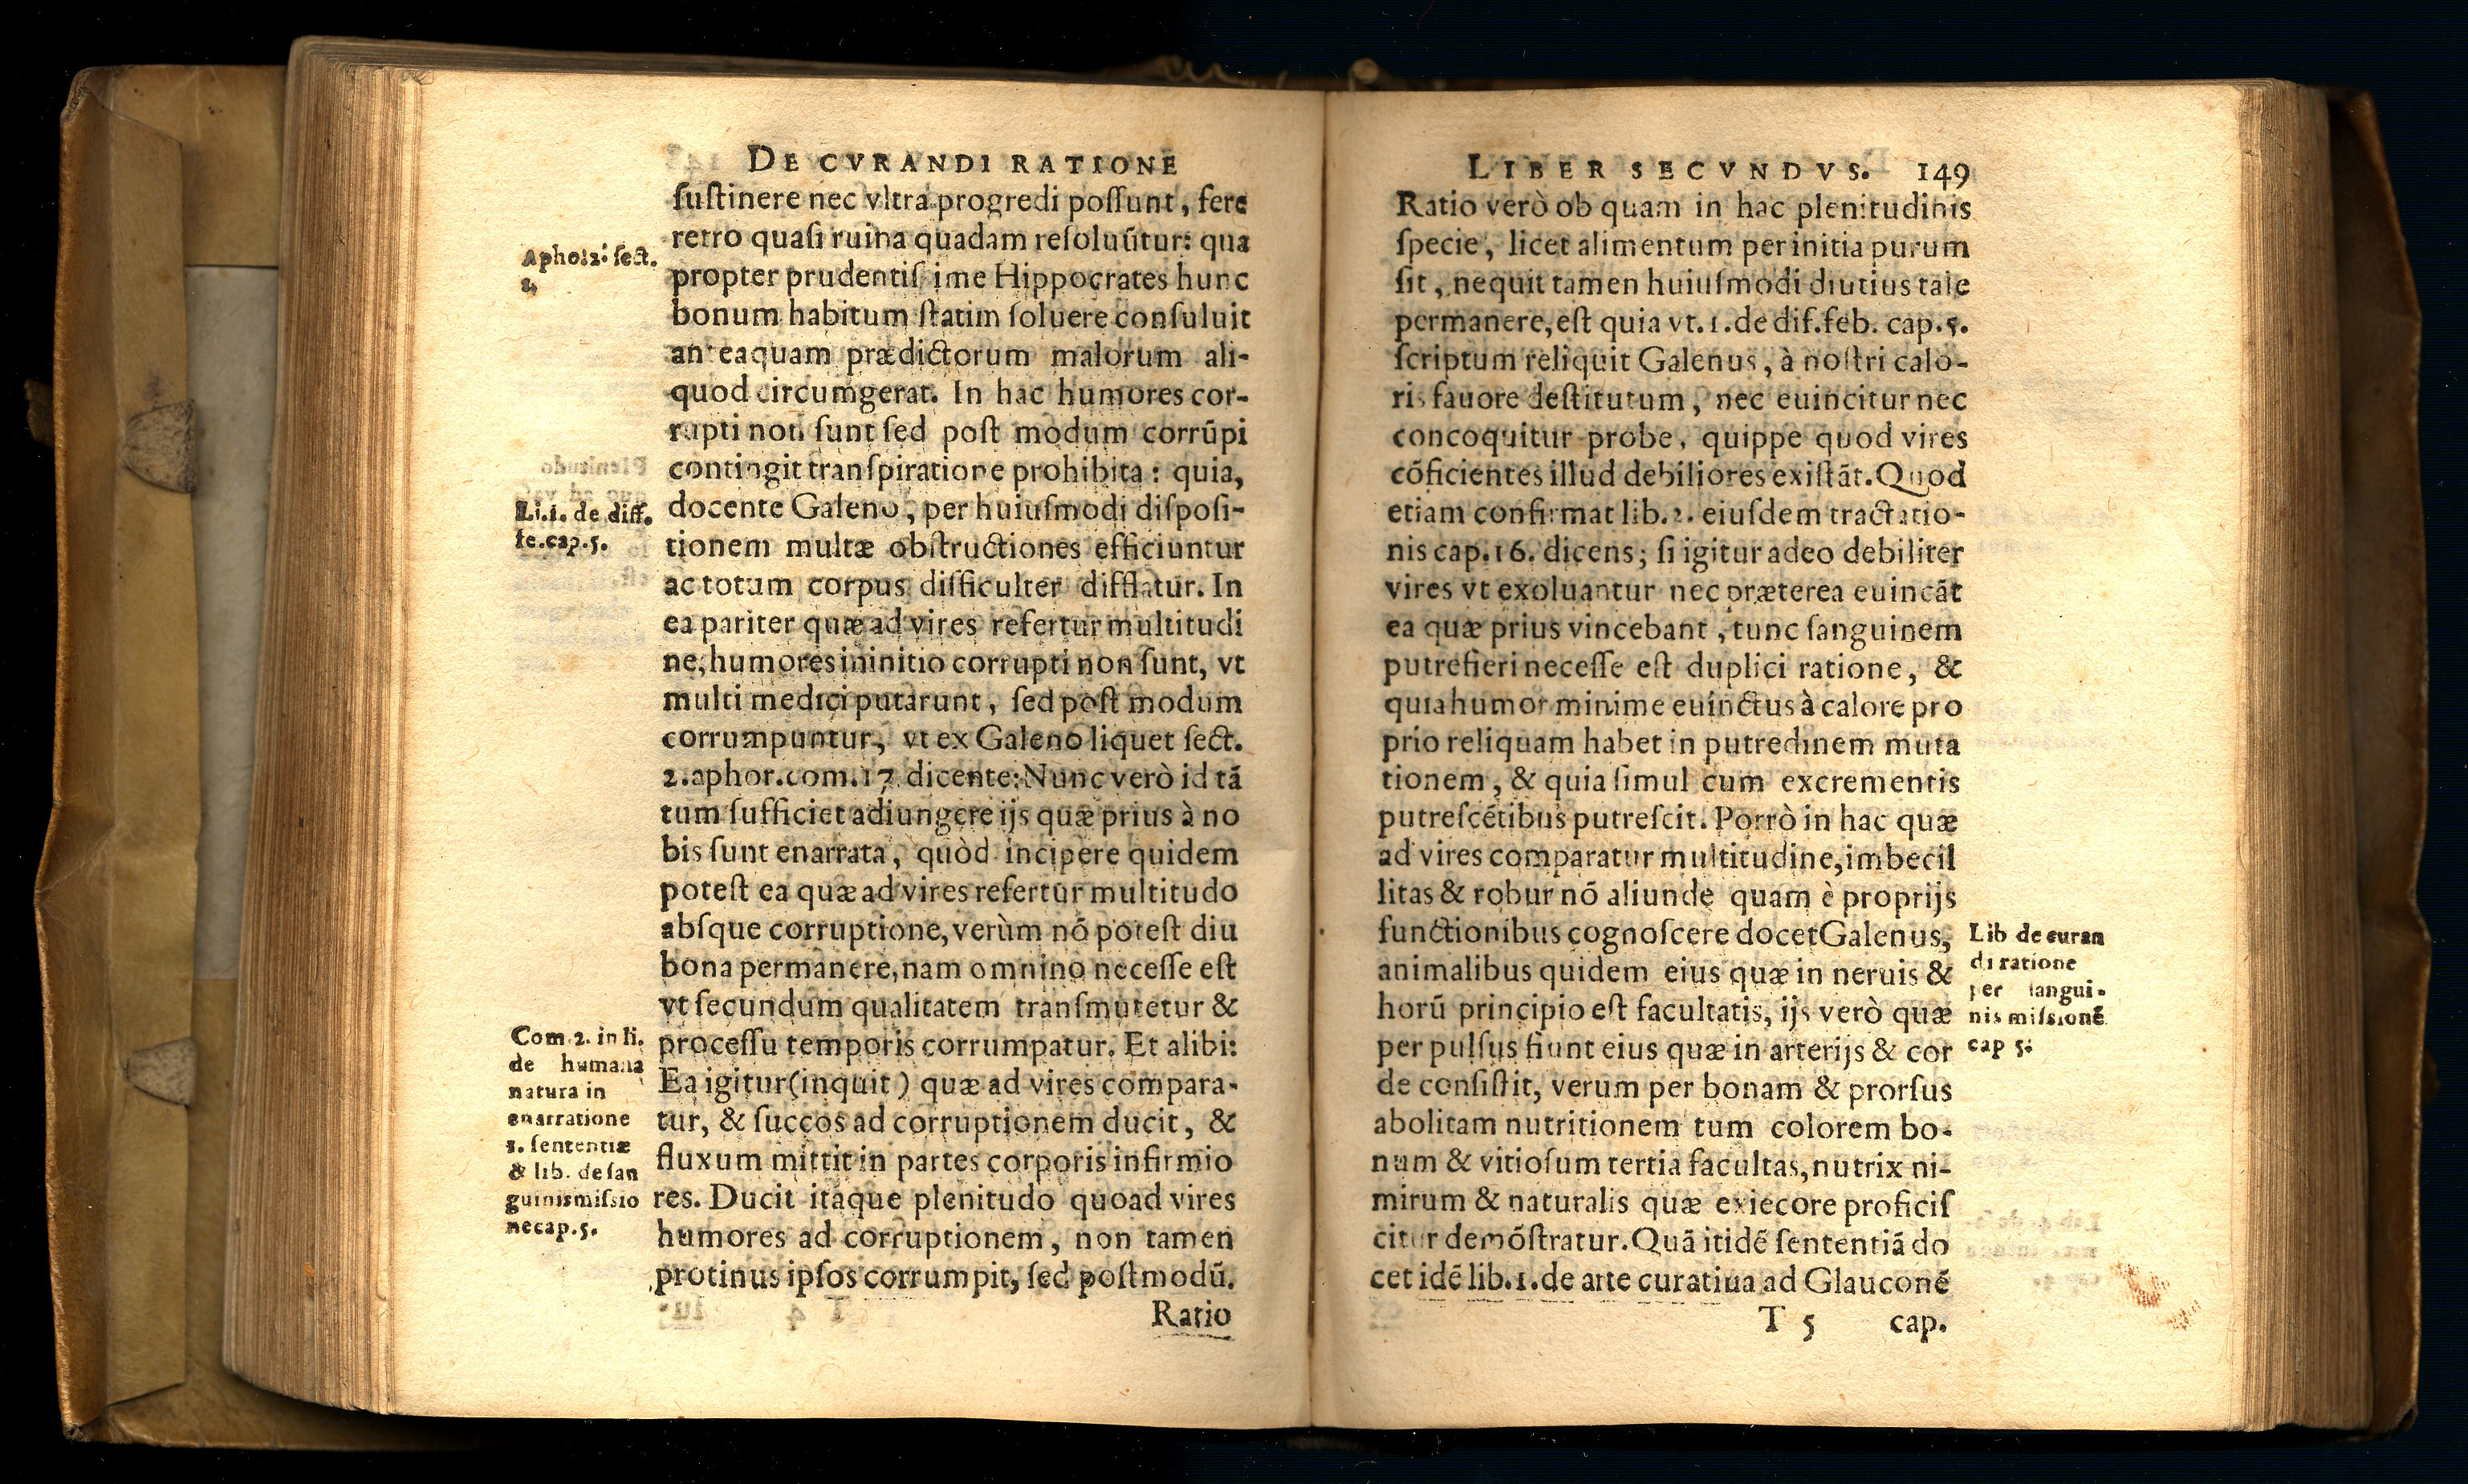 DE CVRANDI RATIONE
ſuſtinere nec vltra progredi poſſunt, fere
retro quaſi ruina quadam reſoluũtur: qua
propter prudentiſ ime Hippocrates hunc
bonum habitum ſtatim ſoluere conſuluit
anteaquam prædictorum malorum ali-
quod circumgerat. In hac humores cor-
rupti non ſunt ſed poſt modum corrũpi
contingit tranſpiratione prohibita: quia,
docente Galeno, per huiuſmodi diſpoſi-
tionem multæ obſtructiones efficiuntur
ac totum corpus difficulter difflatur. In
ea pariter quæ ad vires refertur multitudi
ne, humores in initio corrupti non ſunt, vt
multi medici putarunt, ſed poſt modum
corrumpuntur, vt ex Galeno liquet ſect.
2.aphor.com.17 dicente: Nunc verò id tã
tum ſufficiet adiungere ijs quæ prius à no
bis ſunt enarrata, quòd incipere quidem
poteſt ea quæ ad vires refertur multitudo
abſque corruptione, verùm nõ poteſt diu
bona permanere, nam omnino neceſſe eſt
vt ſecundum qualitatem tranſmutetur &
proceſſu temporis corrumpatur. Et alibi:
Ea igitur (inquit) quæ ad vires compara-
tur, & ſuccos ad corruptionem ducit, &
fluxum mittit in partes corporis infirmio
res. Ducit itaque plenitudo quoad vires
humores ad corruptionem, non tamen
protinus ipſos corrumpit, ſed poſtmodũ.
Ratio
ſect.
Li.i. de diff.
fe.cap.5.
Com 2. in li.
de humana
natura in
enarratione
ſententiæ
& lib. de ſan
guinis miſsio
ne cap.5.
LIBER SECVNDVS. 149
Ratio verò ob quam in hac plenitudinis
ſpecie, licet alimentum per initia purum
ſit, nequit tamen huiuſmodi diutius tale
permanere, eſt quia vt.1.de dif.feb. cap.5.
ſcriptum reliquit Galenus, à noſtri calo-
ris fauore deſtitutum, nec euincitur nec
concoquitur probe, quippe quod vires
cõficientes illud debiliores exiſtãt. Quod
etiam confirmat lib.2. eiuſdem tractatio-
nis cap.16. dicens; ſi igitur adeo debiliter
vires vt exoluantur nec præterea euincãt
ea quæ prius vincebant, tunc ſanguinem
putrefieri neceſſe eſt duplici ratione, &
quia humor minime euinctus à calore pro
prio reliquam habet in putredinem muta
tionem, & quia ſimul cum excrementis
putreſcẽtibus putreſcit. Porrò in hac quæ
ad vires comparatur multitudine, imbecil
litas & robur nõ aliunde quam è proprijs
functionibus cognoſcere docet Galenus,
animalibus quidem eius quæ in neruis &
horũ principio eſt facultatis, ijs verò quæ
per pulſus fiunt eius quæ in arterijs & cor
de conſiſtit, verum per bonam & prorſus
abolitam nutritionem tum colorem bo-
num & vitioſum tertia facultas, nutrix ni-
mirum & naturalis quæ ex iecore proficiſ
citur demõſtratur. Quã itidẽ ſententiã do
cet idẽ lib.1.de arte curatiua ad Glauconẽ
T 5 cap.
Lib de curan
di ratione
per ſangui-
nis miſsionẽ
cap 5.